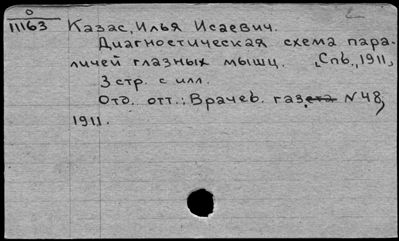 О
11163 Казас, Илья Исаевич.
Диагностическая схема пара-
личей глазных мышц. [Спб., 1911]
3 стр. с илл.
Отд. отт.: Врачеб. газета N 48,
1911.